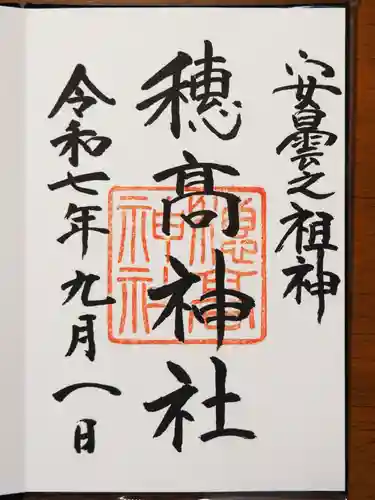 安曇之祖神
穂髙神社
令和七年九月八日
穂髙神社